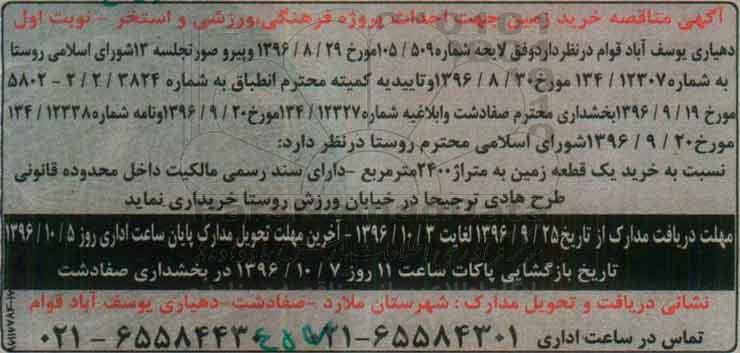 آگهی مناقصه خرید زمین جهت احداث پروژه فرهنگی،ورزشی و استخر - نوبت اول
دهیاری یوسف آباد قوام درنظرداردوفق لایحه شماره۵۰۹ /۱۰۵مورخ ۲۹ / ۸ / ۱۳۹۶ وپیرو صورتجلسه ۱۳شورای اسلامی روستا
به شماره۱۲۳۰۷ / ۱۳۴ مورخ۳۰ / ۸ / ۱۳۹۶وتاییدیه کمیته محترم انطباق به شماره ۳۸۲۴ / ۲ / ۲ - ۵۸۰۲
مورخ ۱۹ / ۹ / ۱۳۹۶بخشداری محترم صفادشت وابلاغیه شماره۱۲۳۲۷ /۱۳۴مورخ۲۰ / ۹ / ۱۳۹۶ونامه شماره۱۲۳۳۸ /۱۳۴
مورخ۲۰ / ۹ / ۱۳۹۶شورای اسلامی محترم روستا درنظر دارد:
نسبت به خرید یک قطعه زمین به متراژ۲۴۰۰مترمربع -دارای سند رسمی مالکیت داخل محدوده قانونی
طرح هادی ترجیحا در خیابان ورزش روستا خریداری نماید
مهلت دریافت مدارک از تاریخ۲۵ / ۹ / ۱۳۹۶ لغایت ۳ / ۱۰ / ۱۳۹۶ - آخرین مهلت تحویل مدارک پایان ساعت اداری روز ۵ / ۱۰ / ۱۳۹۶
تاریخ بازگشایی پاکات ساعت ۱۱ روز ۷ / ۱۰ / ۱۳۹۶ در بخشداری صفادشت
نشانی دریافت و تحویل مدارک : شهرستان ملارد -صفادشت-دهیاری یوسف آباد قوام
تماس در ساعت اداری ۶۵۵۸۴۳۰۱-۰۲۱ ۶۵۵۸۴۴۳۰ - ۰۲۱